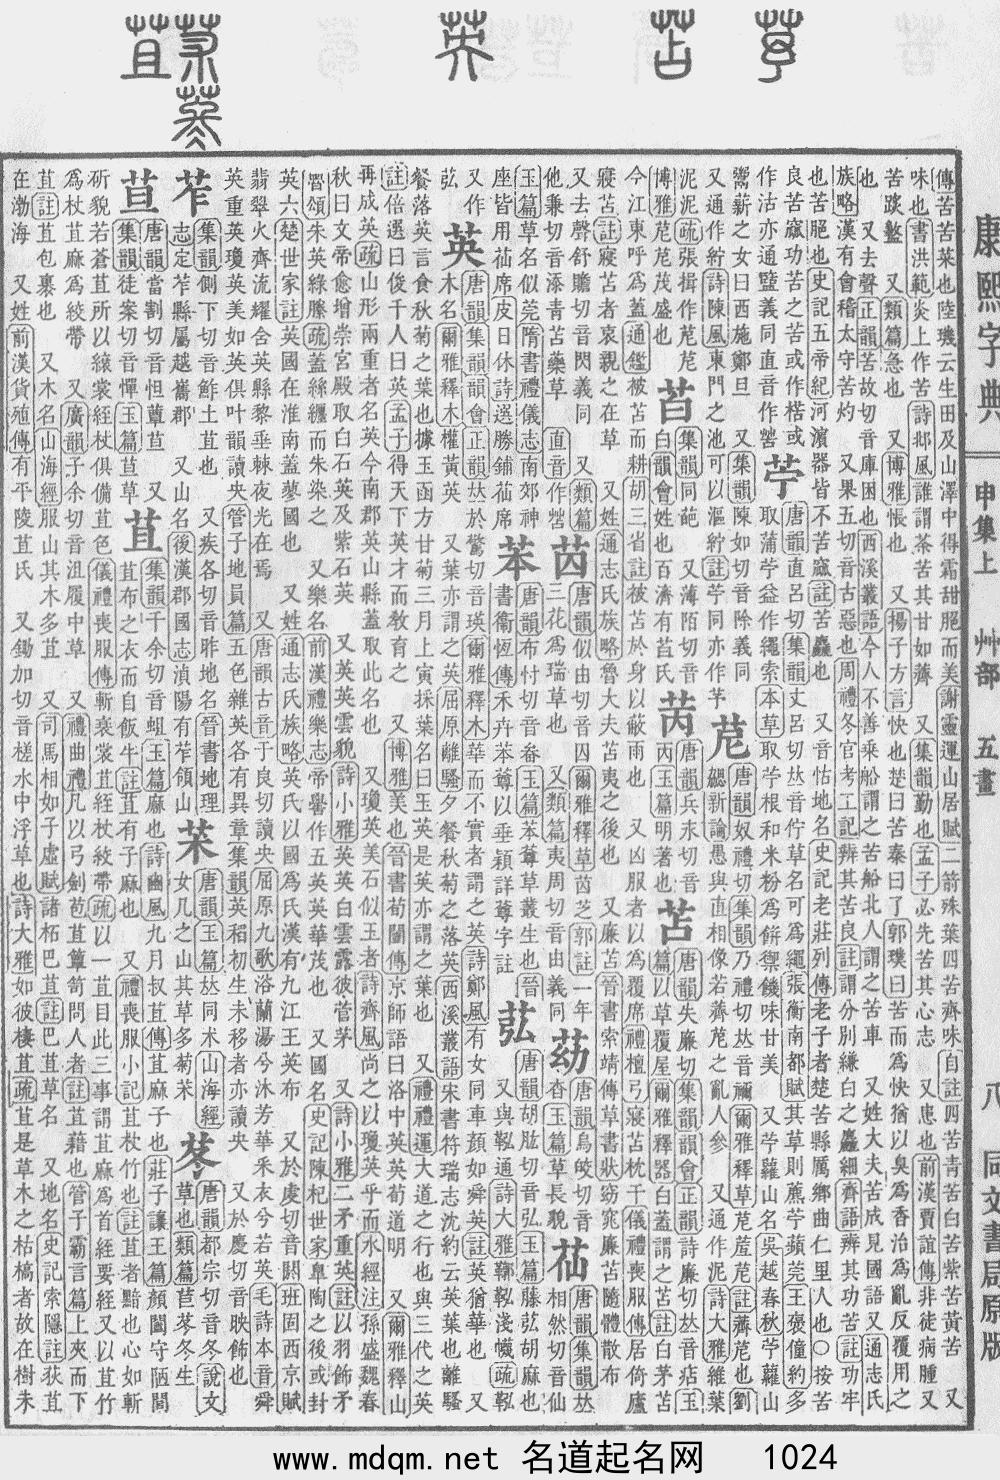 康熙字典 申集上 艸部 五畫 八 同文書局原版
傳苦苦菜也陸璣云生田及山澤中得霜甜脆而美謝靈運山居賦二箭殊葉四苦齊味自註四苦青苦白苦紫苦黃苦 又
味也書洪範炎上作苦詩邶風誰謂荼苦其甘如薺 又集韻勤也孟子必先苦其心志 又患也前漢賈誼傳非徒病腫又
苦盭 又類篇急也 又博雅悵也 又揚子方言快也楚曰苦秦曰了郭璞曰苦而為快猶以臭為香治為亂反覆用之
也 又去聲正韻苦故切音庫困也西溪叢語今人不善乘船謂之苦船北人謂之苦車 又姓大夫苦成見國語又通志氏
族略漢有會稽太守苦灼 又果五切音古惡也周禮冬官考工記辨其苦良註謂分別緣白之麤細齊語辨其功苦註功牢
也苦脆也史記五帝紀河濱器皆不苦窳註苦麤也 又音怙地名史記老莊列傳老子者楚苦縣厲鄉曲仁里人也○按苦
良苦窳功苦之苦或作楛或 苧 唐韻直呂切集韻丈呂切𠀤音佇草名可為繩張衡南都賦其草則藨苧蘋莞王褒僮約多
作沽亦通盬義同直音作䇢 取蒲苧益作繩索本草取苧根和米粉為餅禦饑味甘美 又苧蘿山名吳越春秋苧蘿山
鬻薪之女曰西施鄭旦 又集韻陳如切音除義同 苨 唐韻奴禮切集韻乃禮切𠀤音禰爾雅釋草苨菧苨註薺苨也劉
又通作紵詩陳風東門之池可以漚紵註苧同亦作芧 勰新論愚與直相像若薺苨之亂人參 又通作泥詩大雅維葉
泥泥疏張揖作苨苨 苩 集韻同葩 又薄陌切音 苪 唐韻兵永切音 苫 唐韻失廉切集韻韻會正韻詩廉切𠀤音痁玉
博雅苨苨茂盛也 白韻會姓也百濟有苩氏 丙玉篇明著也 篇以草覆屋爾雅釋器白蓋謂之苫註白茅苫
今江東呼為蓋通鑑被苫而耕胡三省註被苫於身以蔽雨也 又凶服者以為覆席禮檀弓寢苫枕干儀禮喪服傳居倚廬
寢苫註寢苫者哀親之在草 又姓通志氏族略魯大夫苫夷之後也 又廉苫晉書索靖傳草書狀窈窕廉苫隨體散布
又去聲舒贍切音閃義同 又類篇 苬 唐韻似由切音囚爾雅釋草苬芝郭註一年 苭 唐韻烏皎切音 苮 唐韻集韻𠀤
他兼切音添青苫藥草 直音作䇢 三花為瑞草也 又類篇夷周切音由義同 杳玉篇草長貌 相然切音仙
玉篇草名似莞隋書禮儀志南郊神 苯 唐韻布忖切音畚玉篇苯䔿草叢生也晉 苰 唐韻胡肱切音弘玉篇藤苰胡麻也
座皆用苮席皮日休詩選勝鋪苮席 書衛恆傳禾卉苯䔿以垂穎詳䔿字註 又與鞃通詩大雅鞹鞃淺幭疏鞃
又作 英 唐韻集韻韻會正韻𠀤於驚切音瑛爾雅釋木華而不實者謂之英詩鄭風有女同車顏如舜英註英猶華也 又
苰 木名爾雅釋木權黃英 又葉亦謂之英屈原離騷夕餐秋菊之落英西溪叢語宋書符瑞志沈約云英葉也離騷
餐落英言食秋菊之葉也據玉函方甘菊三月上寅採葉名曰玉英是英亦謂之葉也 又禮禮運大道之行也與三代之英
註倍選曰俊千人曰英孟子得天下英才而教育之 又博雅美也晉書荀闓傳京師語曰洛中英英荀道明 又爾雅釋山
再成英疏山形兩重者名英今南郡英山縣蓋取此名也 又瓊英美石似玉者詩齊風尚之以瓊英乎而水經注孫盛魏春
秋曰文帝愈增崇宮殿取白石英及紫石英 又英英雲貌詩小雅英英白雲露彼菅茅 又詩小雅二矛重英註以羽飾矛
魯頌朱英綠縢疏蓋絲纏而朱染之 又樂名前漢禮樂志帝嚳作五英英華茂也 又國名史記陳杞世家皐陶之後或封
英六楚世家註英國在淮南蓋蓼國也 又姓通志氏族略英氏以國為氏漢有九江王英布 又於虔切音閼班固西京賦
翡翠火齊流耀含英縣黎垂棘夜光在焉 又唐韻古音于良切讀央屈原九歌浴蘭湯兮沐芳華采衣兮若英毛詩本音舜
英重英瓊英美如英俱叶韻讀央管子地員篇五色雜英各有異章集韻英稻初生未移者亦讀央 又於慶切音映飾也
苲 集韻側下切音鮓土苴也 又疾各切音昨地名晉書地理 苿 唐韻玉篇𠀤同朮山海經 苳 唐韻都宗切音冬說文
志定苲縣屬越巂郡 又山名後漢郡國志滇陽有苲領山 女几之山其草多菊苿 草也類篇苣苳冬生
苴 唐韻當割切音怛蕈苴 又 苴 集韻千余切音蛆玉篇麻也詩豳風九月叔苴傳苴麻子也莊子讓王篇顏闔守陋閭
集韻徒案切音憚玉篇苴草 苴布之衣而自飯牛註苴有子麻也 又禮喪服小記苴杖竹也註苴者黯也心如斬
斫貌若蒼苴所以縗裳絰杖俱備苴色儀禮喪服傳斬衰裳苴絰杖絞帶疏以一苴目此三事謂苴麻為首絰要絰又以苴竹
為杖苴麻為絞帶 又廣韻子余切音沮履中草 又禮曲禮凡以弓劍苞苴簞笥問人者註苴藉也管子霸言篇上夾而下
苴註苴包裹也 又木名山海經服山其木多苴 又司馬相如子虛賦諸柘巴苴註巴苴草名 又地名史記索隱註荻苴
在渤海 又姓前漢貨殖傳有平陵苴氏 又鋤加切音槎水中浮草也詩大雅如彼棲苴疏苴是草木之枯槁者故在樹朱
www.mdqm.net 名道起名网 1024